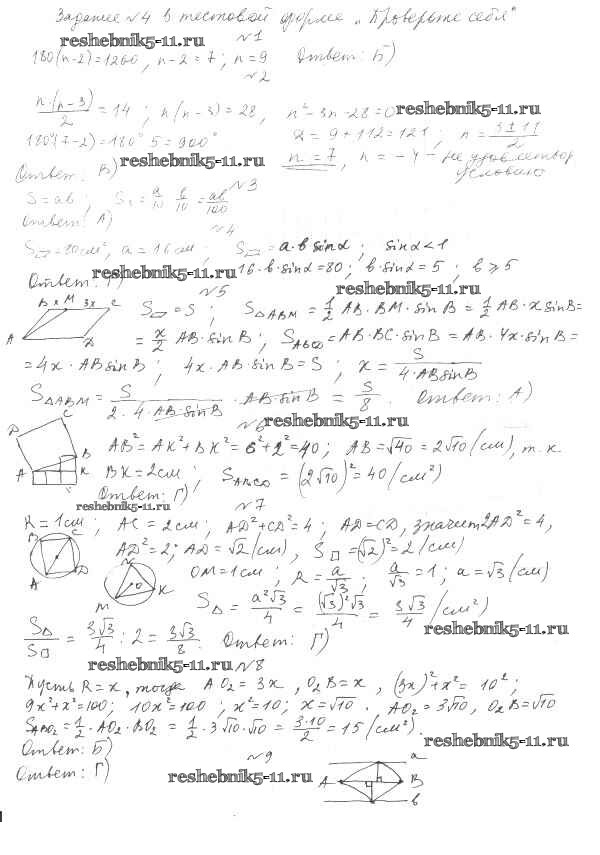 Задание №4 в тестовой форме „Проверьте себя"
reshebnik5-11.ru
№1
180(n-2)=1260, n-2=7; n=9 Ответ: Б)
№2
n·(n-3)/2 = 14; n(n-3)=28, n²-3n-28=0 reshebnik5-11.ru
180°(7-2)=180°·5=900° D=9+112=121; n=(3±11)/2
Ответ: В) reshebnik5-11.ru n=7, n=-4 - не удовлетвор условию
№3
S=ab; S₁=a/10 · b/10 = ab/100
Ответ: А)
№4
S▱=80см², a=16см; S▱=a·b sinα; sinα<1
reshebnik5-11.ru 16·b·sinα=80; b·sinα=5; b≥5
Ответ: Г) reshebnik5-11.ru
№5
B x M 3x C
A D
S▱=S; S△ABM=1/2 AB·BM·sinB=1/2 AB·x sinB=
=x/2 AB·sinB; SABCD=AB·BC·sinB=AB·4x·sinB=
=4x·ABsinB; 4x·AB·sinB=S; x=S/(4·ABsinB)
S△ABM=S/(2·4·AB·sinB)·AB·sinB=S/8. Ответ: А)
№6 reshebnik5-11.ru
D C
A B K
AB²=AK²+BK²=6²+2²=40; AB=√40=2√10(см), т.к.
BK=2см; SABCD=(2√10)²=40(см²)
Ответ: Г)
reshebnik5-11.ru №7
R=1см; AC=2см; AD²+CD²=4; AD=CD, значит 2AD²=4,
B C
A D
AD²=2; AD=√2(см), S□=(√2)²=2(см)
N
O
M K
OM=1см; R=a/√3; a/√3=1; a=√3(см)
S△=a²√3/4=(√3)²√3/4=3√3/4(см²)
reshebnik5-11.ru
S△/S□=3√3/4:2=3√3/8. Ответ: Г)
reshebnik5-11.ru №8
Пусть R=x, тогда AO₂=3x, O₂B=x, (3x)²+x²=10²;
9x²+x²=100; 10x²=100; x²=10; x=√10. AO₂=3√10, O₂B=√10
SABO₂=1/2·AO₂·BO₂=1/2·3√10·√10=3·10/2=15(см²).
reshebnik5-11.ru
Ответ: Б)
№9
Ответ: Г) reshebnik5-11.ru
a
A B
в
reshebnik5-11.ru